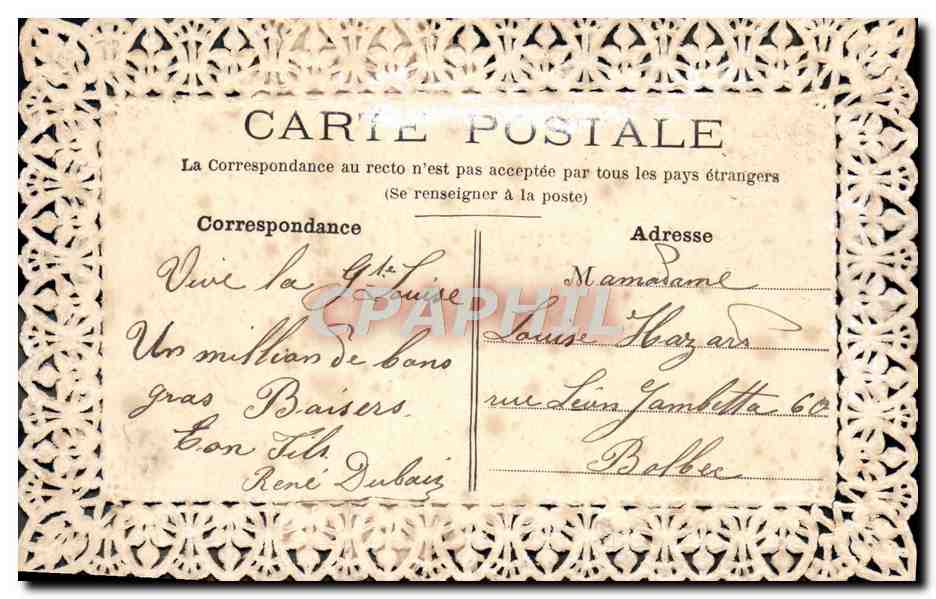 CARTE POSTALE
La Correspondance au recto n'est pas acceptée par tous les pays étrangers
(Se renseigner à la poste)
Correspondance
Vive la Ste Louise
Un million de bons
gras Baisers.
Ton Fils
René Dubain
Adresse
Mamadame
Louise Hazard
rue Léon Gambetta 60
Bolbec
CPAPHIL